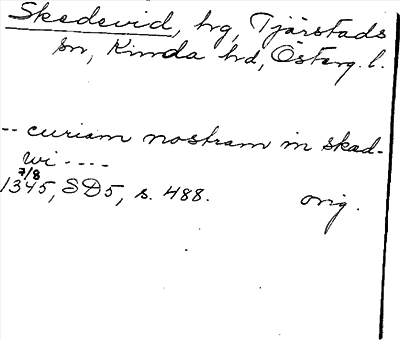 Skedevid, hrg, Tjärstads
sn, Kinda hd, Österg. l.
-- curiam nostram in skad-
wi ----
7/8
1345, SD5, s. 488. orig.